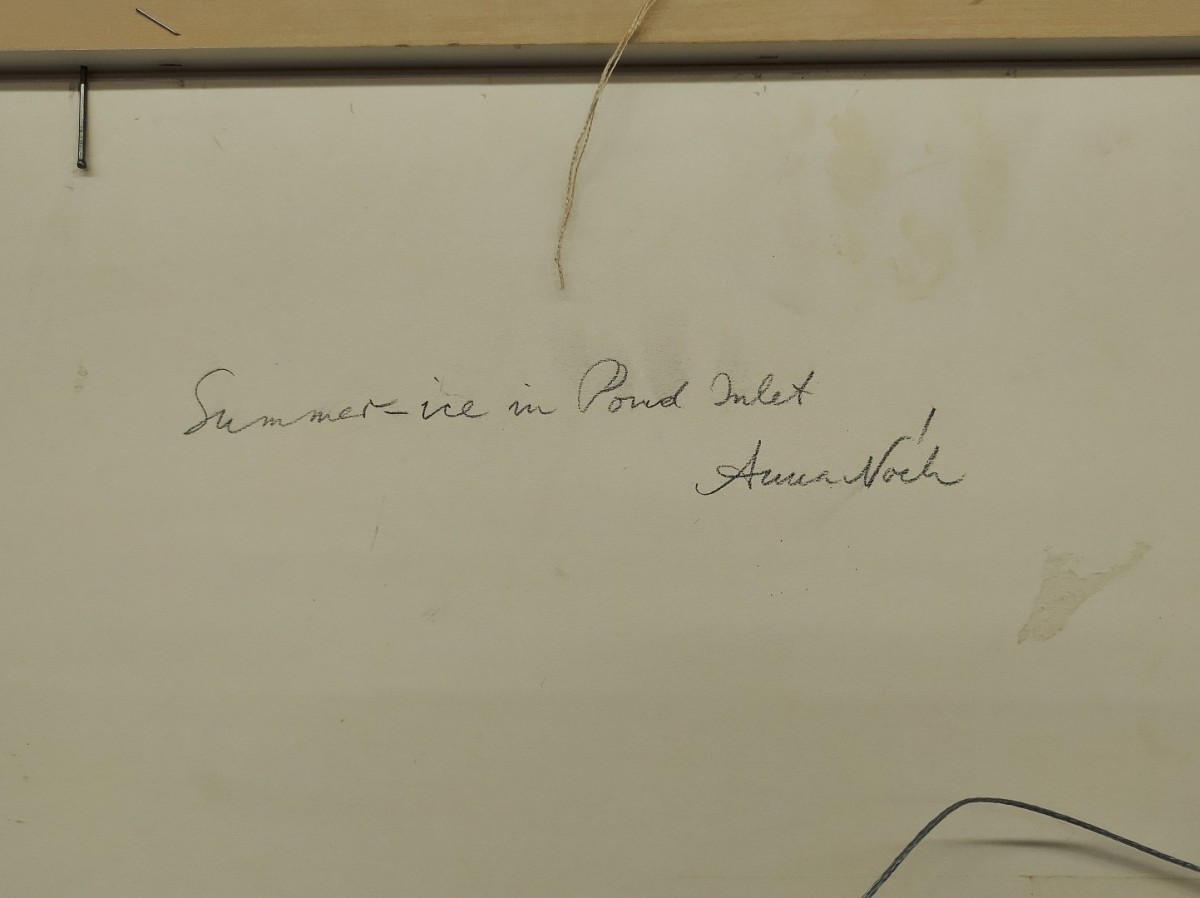 Summer-ice in Pond Inlet
Anna Noéh